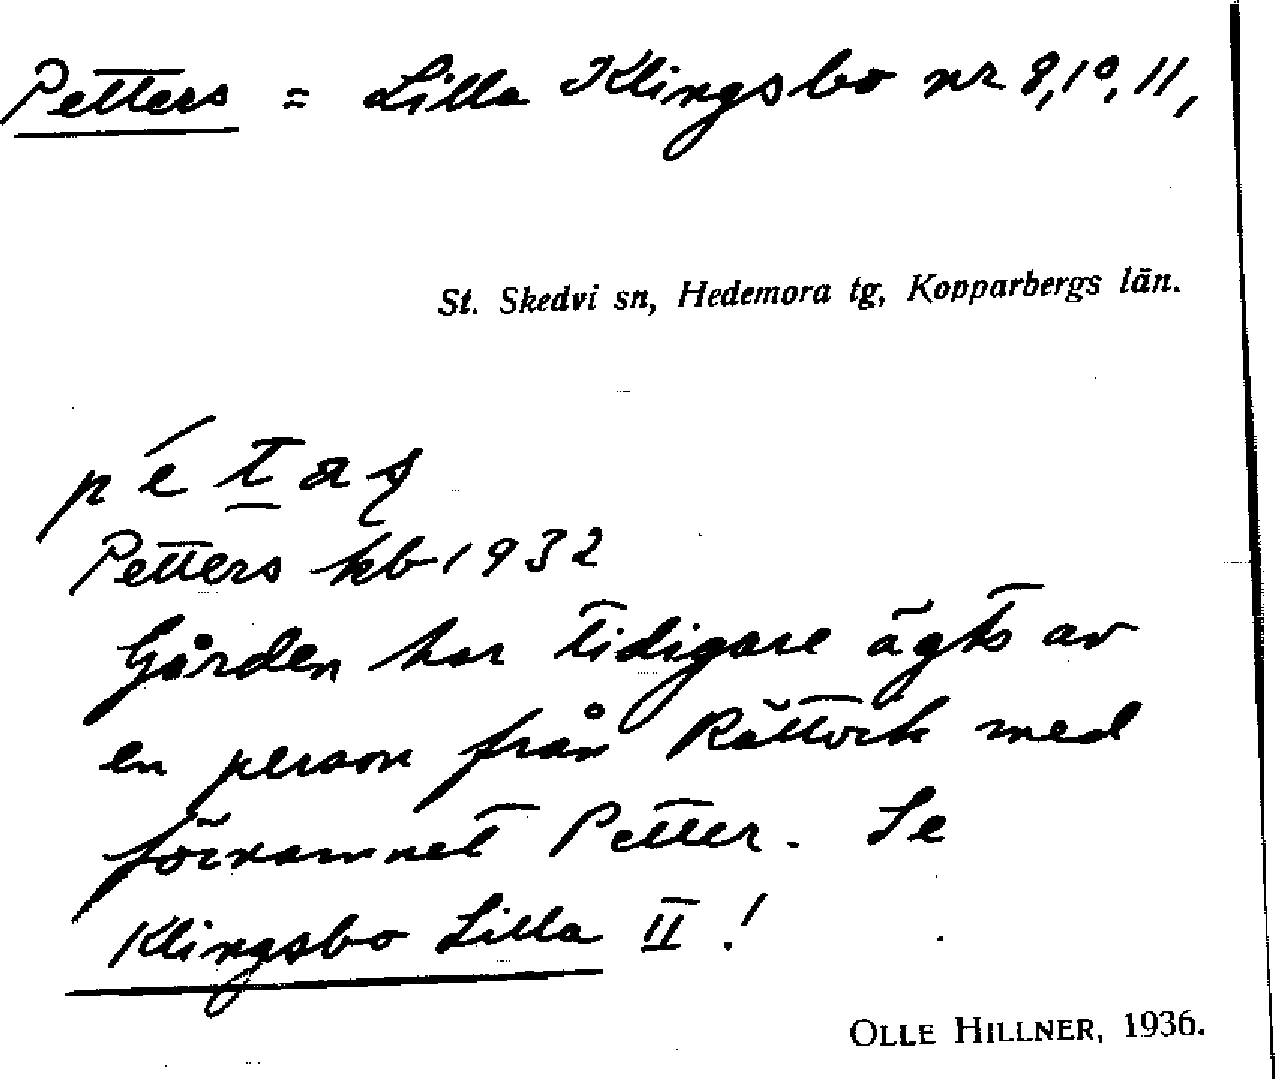 Petters = Lilla Klingsbo nr 8, 10, 11,
St. Skedvi sn, Hedemora tg, Kopparbergs län.
Petters kb 1932
Gården har tidigare ägts av
en person från Rättvik med
förnamnet Petter. Se
Klingsbo Lilla II !
OLLE HILLNER, 1936.